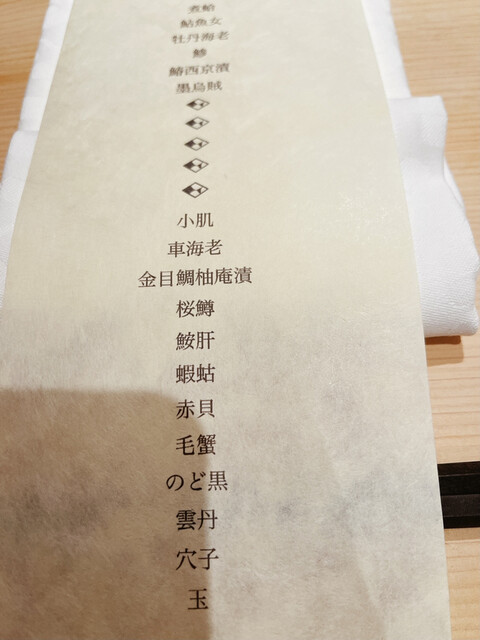 煮蛤
鮎魚女
牡丹海老
鯵
鰆西京漬
墨烏賊
小肌
車海老
金目鯛柚庵漬
桜鱒
鮟肝
蝦蛄
赤貝
毛蟹
のど黒
雲丹
穴子
玉